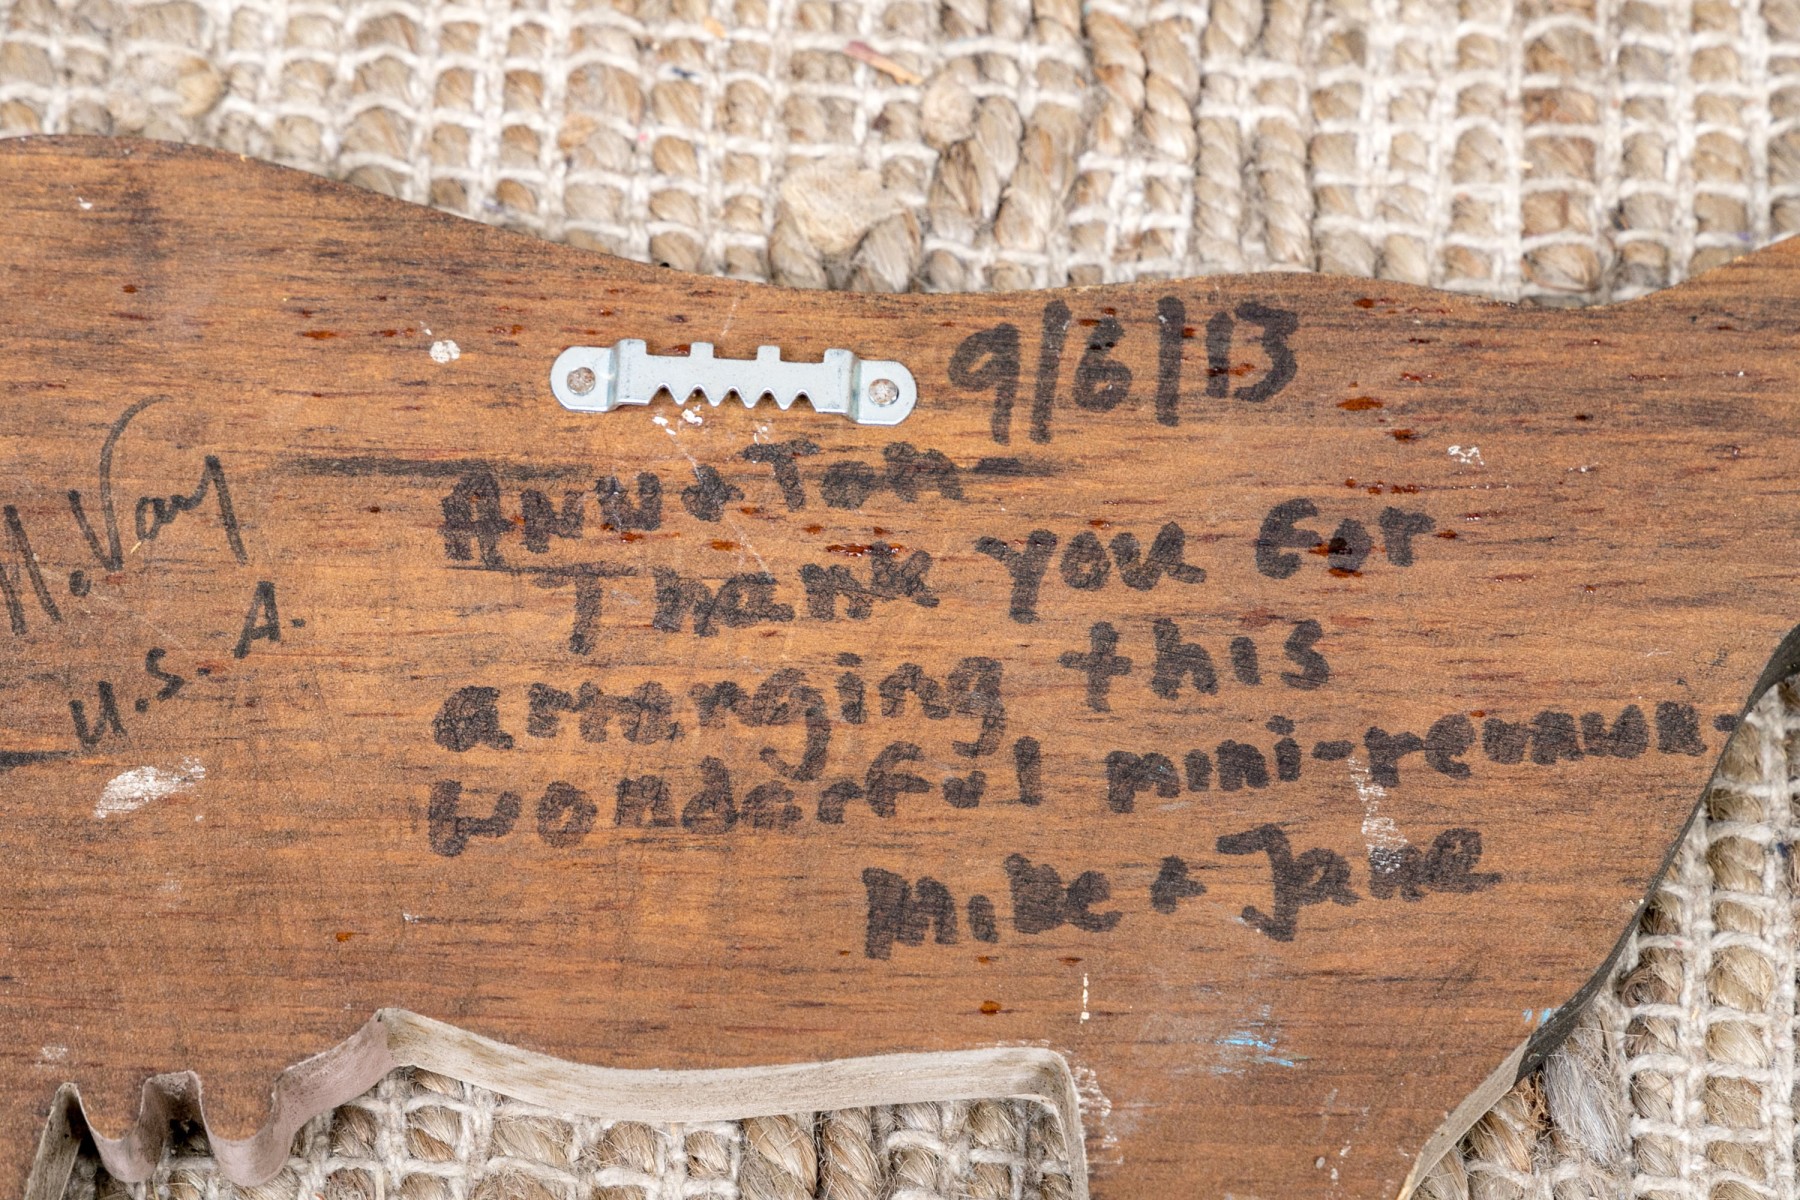 9/6/13
Ann & Tom -
Thank you for
arranging this
wonderful mini-reunion.
Mike & Jane
M. Vay
U.S.A.